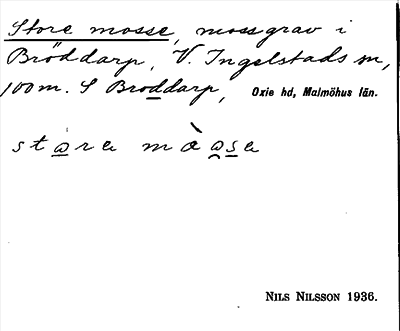 Store mosse, mossgrav i
Bröddarp, V. Ingelstads sn,
100 m. S Broddarp, Oxie hd, Malmöhus län.
NILS NILSSON 1936.